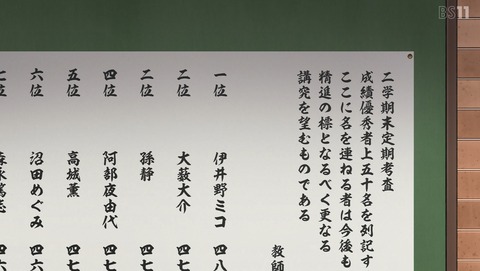 BS11
二学期末定期考査
成績優秀者上五十名を列記す
ここに名を連ねる者は今後も
精進の標となるべく更なる
講究を望むものである
教師
一位 伊井野ミコ 四八
二位 大薮大介 四七
二位 孫静 四七
四位 阿部夜由代 四七
五位 高城薫 四七
六位 沼田めぐみ 四六
七位